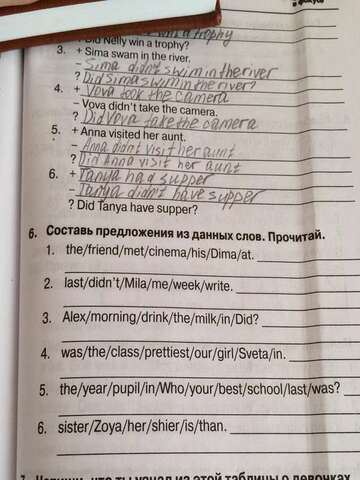 в фокусе
win a trophy
? Did Nelly win a trophy?
3. + Sima swam in the river.
– Sima didn't swim in the river
? Did sima swim in the river?
4. + Vova took the camera
– Vova didn't take the camera.
? Did Vova take the camera
5. + Anna visited her aunt.
– Anna didnt visit her aunt
? Did Anna visit her aunt
6. + Tanya had supper
– Tanya didn't have supper
? Did Tanya have supper?
6. Составь предложения из данных слов. Прочитай.
1. the/friend/met/cinema/his/Dima/at.
2. last/didn't/Mila/me/week/write.
3. Alex/morning/drink/the/milk/in/Did?
4. was/the/class/prettiest/our/girl/Sveta/in.
5. the/year/pupil/in/Who/your/best/school/last/was?
6. sister/Zoya/her/shier/is/than.
7. Напиши, что ты узнал из этой таблицы о девочках